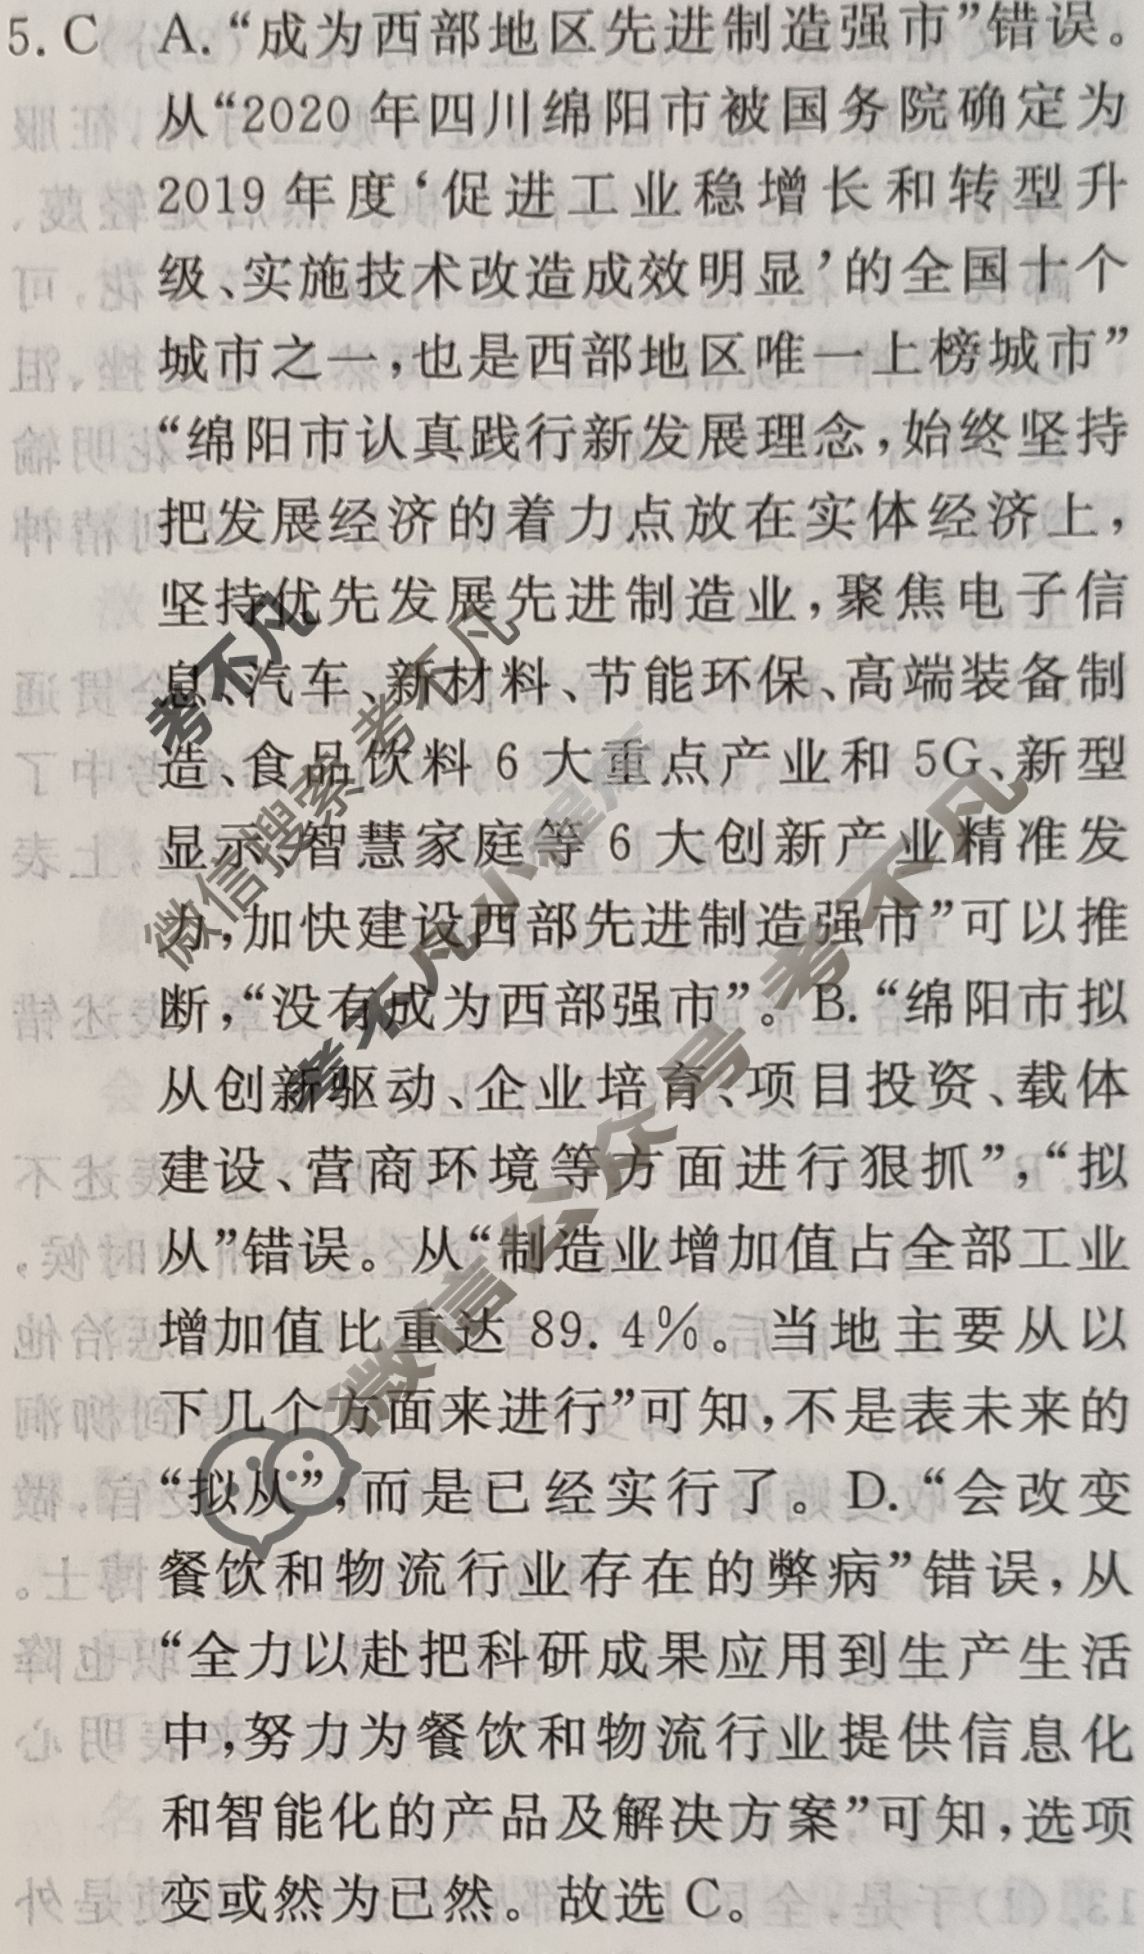 5. C A. “成为西部地区先进制造强市”错误。
从“2020 年四川绵阳市被国务院确定为
2019 年度‘促进工业稳增长和转型升
级、实施技术改造成效明显’的全国十个
城市之一,也是西部地区唯一上榜城市”
“绵阳市认真践行新发展理念,始终坚持
把发展经济的着力点放在实体经济上,
坚持优先发展先进制造业,聚焦电子信
息、汽车、新材料、节能环保、高端装备制
造、食品饮料 6 大重点产业和 5G、新型
显示、智慧家庭等 6 大创新产业精准发
力,加快建设西部先进制造强市”可以推
断,“没有成为西部强市”。B. “绵阳市拟
从创新驱动、企业培育、项目投资、载体
建设、营商环境等方面进行狠抓”,“拟
从”错误。从“制造业增加值占全部工业
增加值比重达 89. 4%。当地主要从以
下几个方面来进行”可知,不是表未来的
“拟从”,而是已经实行了。D. “会改变
餐饮和物流行业存在的弊病”错误,从
“全力以赴把科研成果应用到生产生活
中,努力为餐饮和物流行业提供信息化
和智能化的产品及解决方案”可知,选项
变或然为已然。故选 C。
考不凡
微信搜索 考不凡
考不凡小程序
微信公众号 考不凡